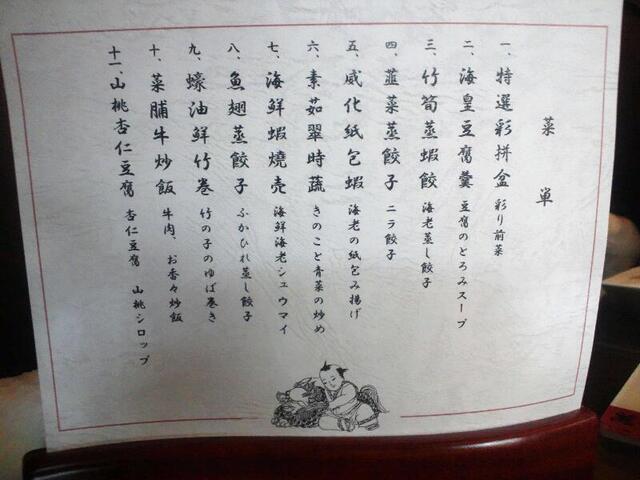 菜単
一、特選彩拼盆 彩り前菜
二、海皇豆腐羹 豆腐のとろみスープ
三、竹筍蒸蝦餃 海老蒸し餃子
四、韮菜蒸餃子 ニラ餃子
五、威化紙包蝦 海老の紙包み揚げ
六、素茹翠時蔬 きのこと青菜の炒め
七、海鮮蝦焼売 海鮮海老シュウマイ
八、魚翅蒸餃子 ふかひれ蒸し餃子
九、蠔油鮮竹巻 竹の子のゆば巻き
十、菜脯牛炒飯 牛肉、お香々炒飯
十一、山桃杏仁豆腐 杏仁豆腐 山桃シロップ